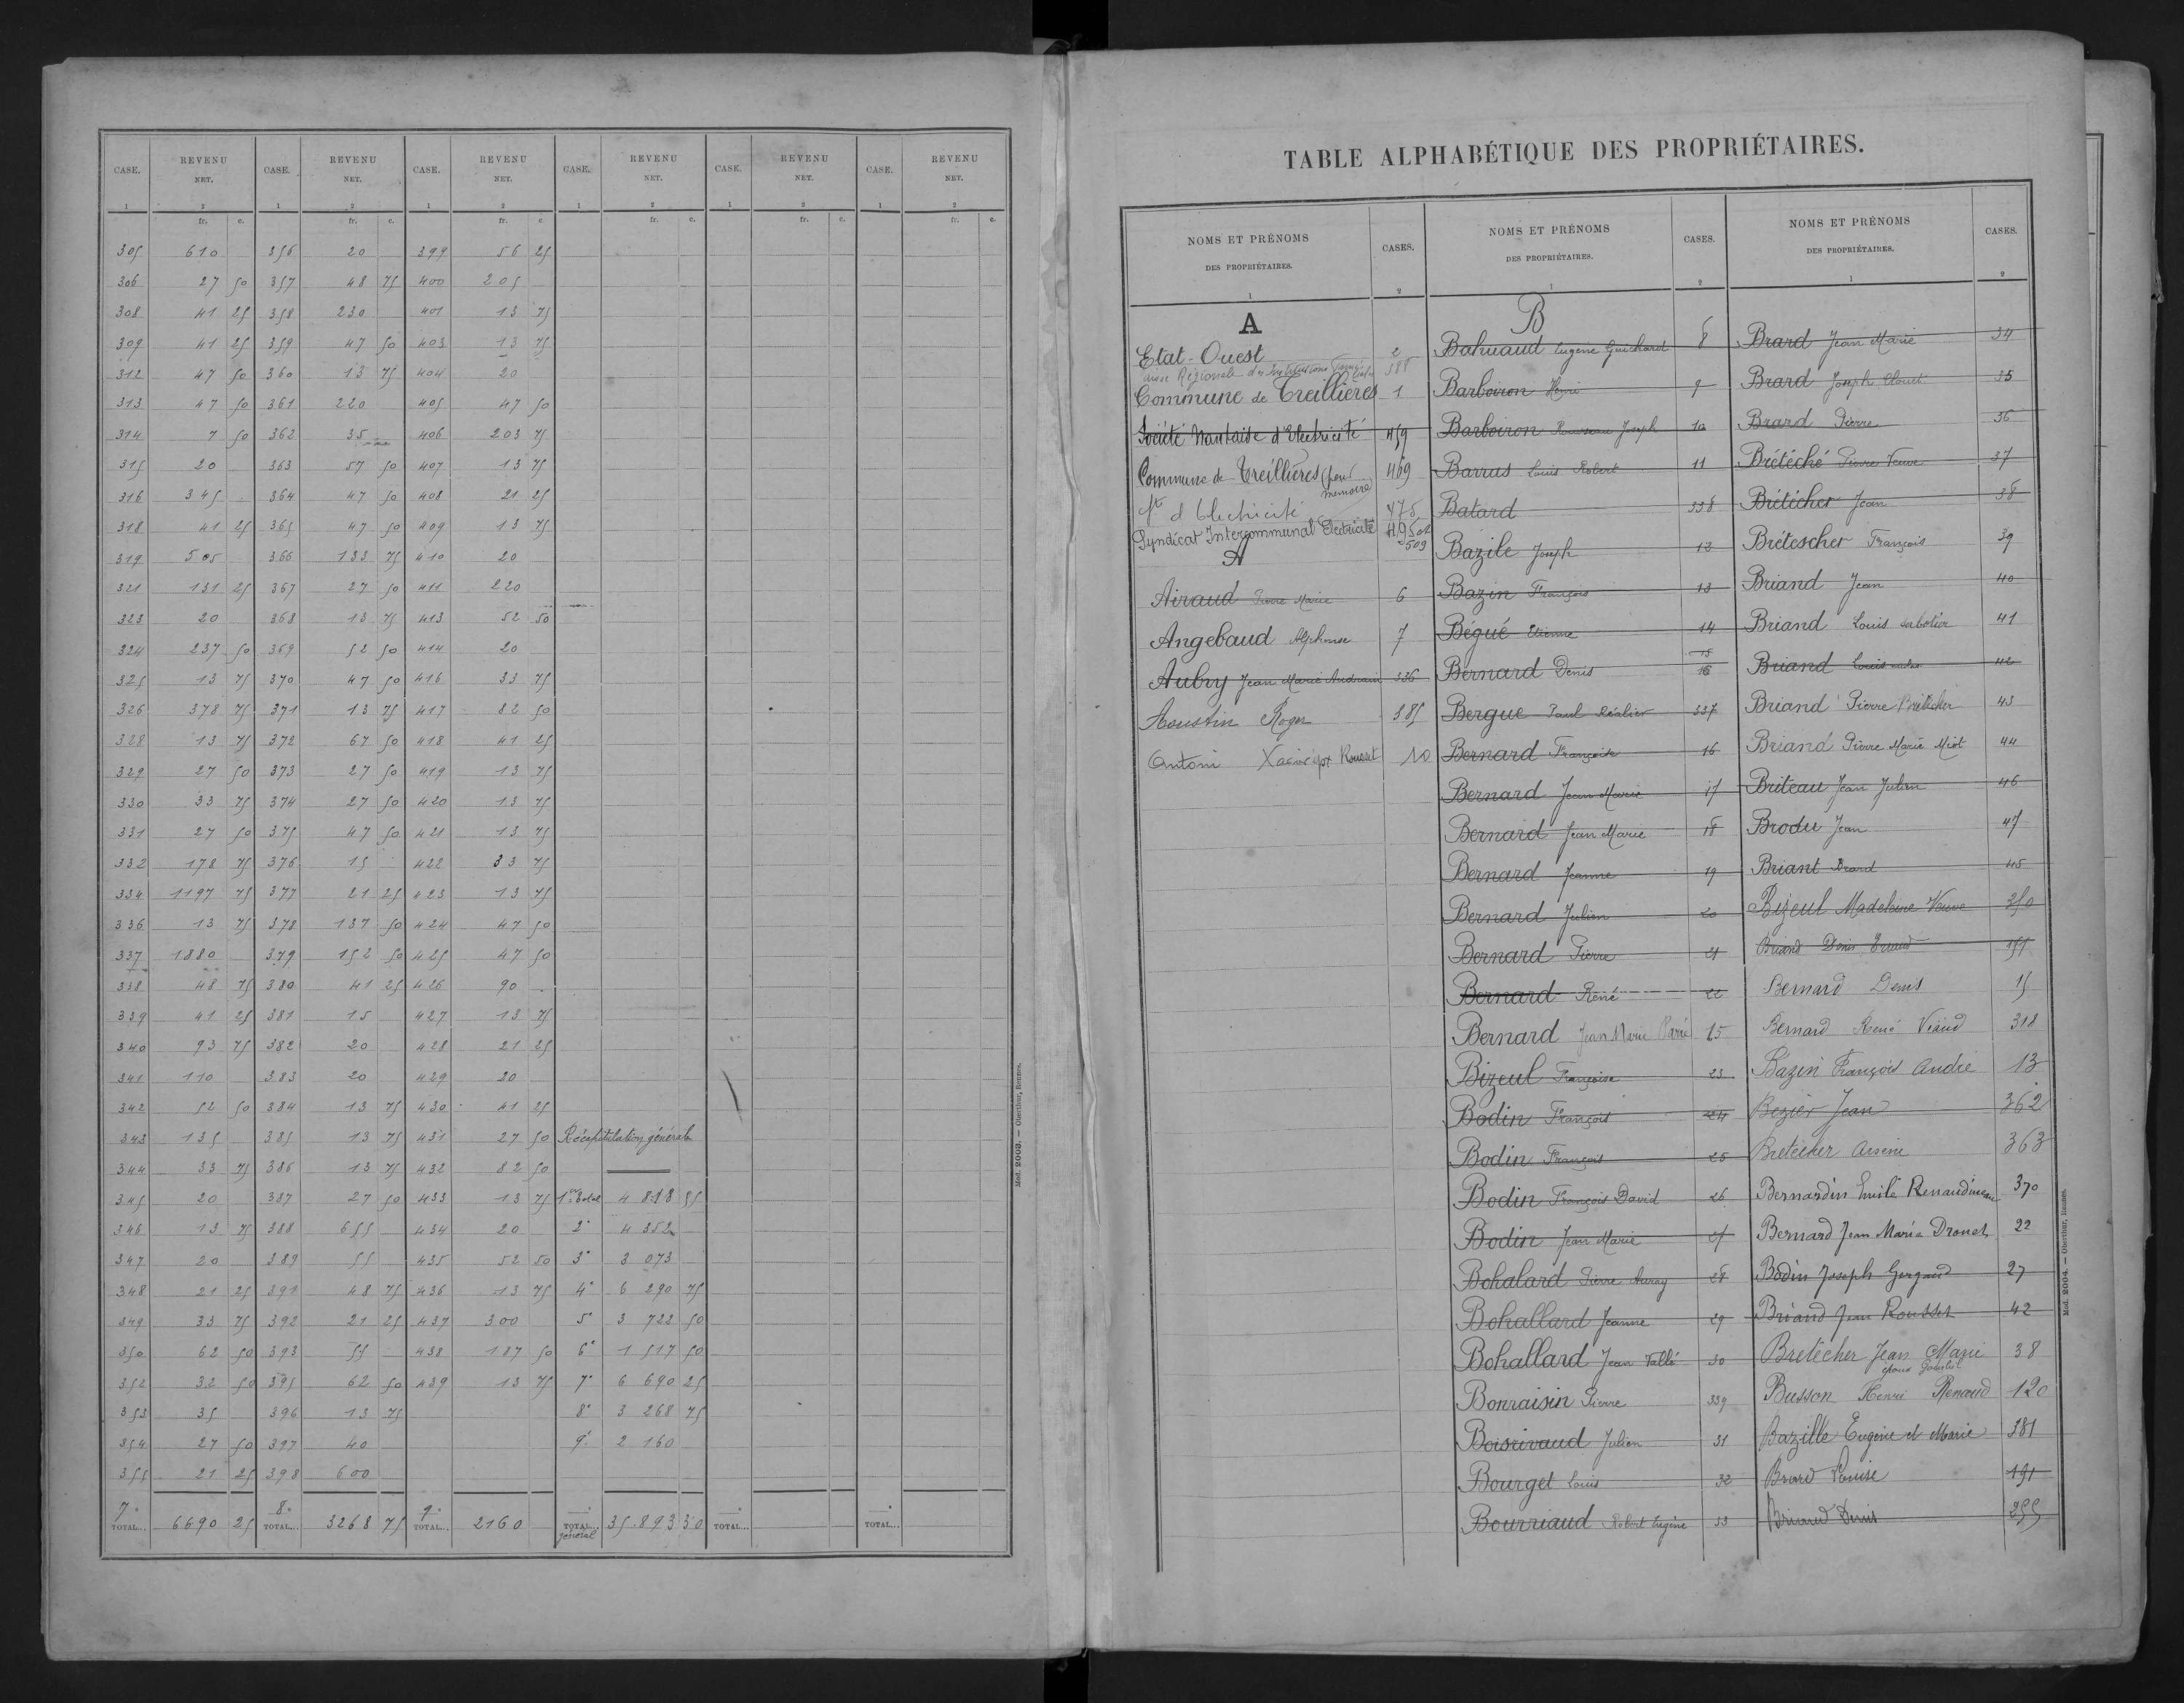 CASE. REVENU NET. CASE. REVENU NET. CASE. REVENU NET. CASE. REVENU NET. CASE. REVENU NET. CASE. REVENU NET.
1 2 1 2 1 2 1 2 1 2 1 2
fr. c. fr. c. fr. c. fr. c. fr. c. fr. c.
305 610 356 20 399 56 25
306 27 50 357 48 75 400 205
308 41 25 358 230 401 13 75
309 41 25 359 47 50 403 13 75
312 47 50 360 13 75 404 20
313 47 50 361 220 405 47 50
314 7 50 362 35 406 203 75
315 20 363 57 50 407 13 75
316 345 364 47 50 408 21 25
318 41 25 365 47 50 409 13 75
319 505 366 133 75 410 20
321 131 25 367 27 50 411 220
323 20 368 13 75 413 52 50
324 237 50 369 52 50 414 20
325 13 75 370 47 50 416 33 75
326 378 75 371 13 75 417 82 50
328 13 75 372 67 50 418 41 25
329 27 50 373 27 50 419 13 75
330 33 75 374 27 50 420 13 75
331 27 50 375 47 50 421 13 75
332 178 75 376 15 422 33 75
334 1197 75 377 21 25 423 13 75
336 13 75 378 137 50 424 47 50
337 1880 379 152 50 425 47 50
338 48 75 380 41 25 426 90
339 41 25 381 15 427 13 75
340 93 75 382 20 428 21 25
341 110 383 20 429 20
342 52 50 384 13 75 430 41 25
343 135 385 13 75 431 27 50 Récapitulation générale
344 33 75 386 13 75 432 82 50
345 20 387 27 50 433 13 75 1er Total 4 818 55
346 13 75 388 655 434 20 2° 4 352
347 20 389 55 435 52 50 3° 3 073
348 21 25 391 48 75 436 13 75 4° 6 290 75
349 33 75 392 21 25 437 300 5° 3 722 50
350 62 50 393 55 438 187 50 6° 1 517 50
352 32 50 395 62 50 439 13 75 7° 6 690 25
353 35 396 13 75 8° 3 268 75
354 27 50 397 40 9° 2 160
355 21 25 398 600
7° TOTAL... 6690 25 8° TOTAL... 3268 75 9° TOTAL... 2160 TOTAL... général 35.893 30 TOTAL... TOTAL...
Mod. 2003. — Oberthur, Rennes.
TABLE ALPHABÉTIQUE DES PROPRIÉTAIRES.
NOMS ET PRÉNOMS DES PROPRIÉTAIRES. CASES.
1 2
A
Etat-Ouest 2
Régionale des Institutions
Commune de Treillières 1
Société Nantaise d'Electricité 459
Commune de Treillières (pour mémoire) 469
Sté d'Electricité 475
Syndicat Intercommunal Electricité
509
A
Airaud Pierre Marie 6
Angebaud Alphonse 7
Aubry Jean Marie Audrain 336
Aoustin Roger 385
Antoni 10
NOMS ET PRÉNOMS DES PROPRIÉTAIRES. CASES.
1 2
B
Bahuaud Eugène Guichard 8
Barboiron Henri 9
Barboiron Rousseau Joseph 10
Barrus Louis Robert 11
Batard 338
Bazile Joseph 12
Bazin François 13
Bégué Etienne 14
Bernard Denis 15
Bergue Paul Réalier 337
Bernard Françoise 16
Bernard Jean Marie 17
Bernard Jean Marie 18
Bernard Jeanne 19
Bernard Julien 20
Bernard Pierre 21
Bernard René 22
Bernard Jean Marie 25
Bizeul Françoise 23
Bodin François 24
Bodin François 25
Bodin François David 26
Bodin Jean Marie 27
Bohalard Pierre Auray 28
Bohallard Jeanne 29
Bohallard Jean Vallé 30
Bonraisin Pierre 339
Boisrivaud Julien 31
Bourget Louis 32
Bourriaud Robert Eugène 33
NOMS ET PRÉNOMS DES PROPRIÉTAIRES. CASES.
1 2
Brard Jean Marie 34
Brard Joseph Clouet 35
Brard Pierre 36
Brétéché Pierre Veuve 37
Brétécher Jean 38
Brétescher François 39
Briand Jean 40
Briand Louis sabotier 41
Briand Louis 42
Briand Pierre Brétécher 43
Briand Pierre Marie Miot 44
Briteau Jean Julien 46
Brodu Jean 47
Briant Brard 45
Bizeul Madeleine Veuve 350
Briand Denis
Bernard Denis 15
Bernard René Viaud 318
Bazin François André 13
Bézier Jean 362
Bretécher Arsène 363
Bernardin Emile Renaudineau 370
Bernard Jean Marie Drouet 22
Bodin Joseph Gergaud 27
Briand Jean Rousset 42
Bretécher Jean Marie 38
époux
Busson Henri Renaud 120
Bazille Eugénie et Marie 381
Briand Louise 191
Briand Denis 255
Mod. 2004. — Oberthur, Rennes.